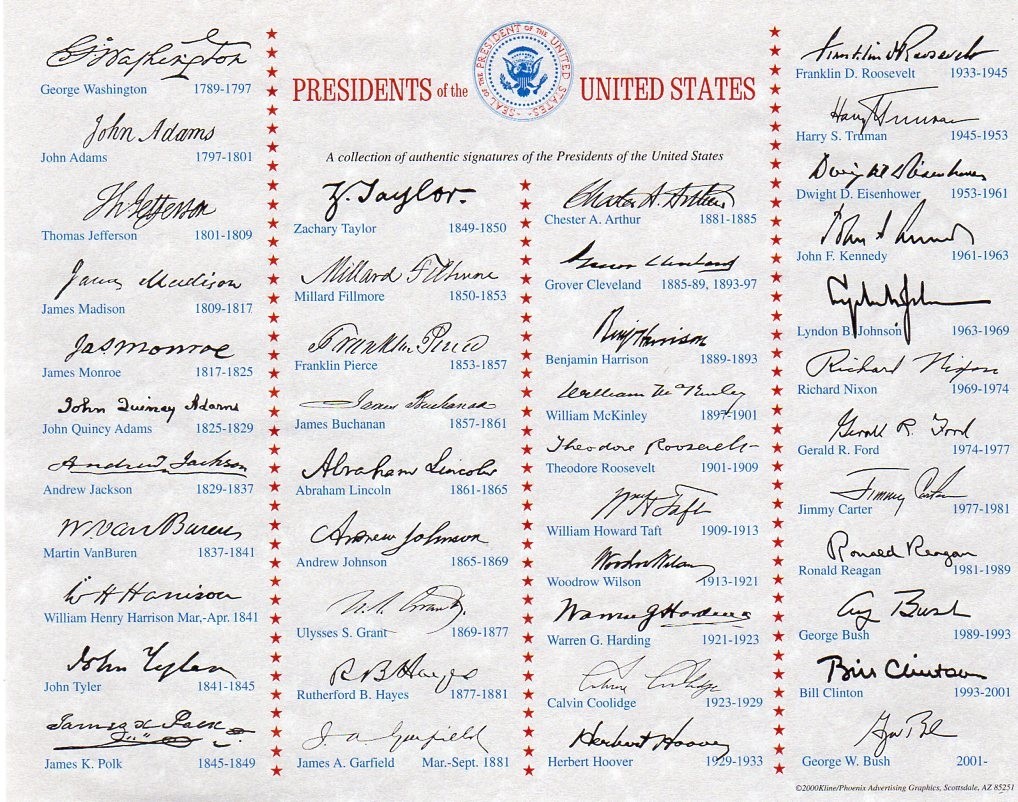 PRESIDENTS of the UNITED STATES
SEAL OF THE PRESIDENT OF THE UNITED STATES
A collection of authentic signatures of the Presidents of the United States
G Washington
George Washington 1789-1797
John Adams
John Adams 1797-1801
Th Jefferson
Thomas Jefferson 1801-1809
James Madison
James Madison 1809-1817
Jas Monroe
James Monroe 1817-1825
John Quincy Adams
John Quincy Adams 1825-1829
Andrew Jackson
Andrew Jackson 1829-1837
M. Van Buren
Martin VanBuren 1837-1841
W H Harrison
William Henry Harrison Mar.-Apr. 1841
John Tyler
John Tyler 1841-1845
James K Polk
James K. Polk 1845-1849
Z. Taylor.
Zachary Taylor 1849-1850
Millard Fillmore
Millard Fillmore 1850-1853
Franklin Pierce
Franklin Pierce 1853-1857
James Buchanan
James Buchanan 1857-1861
Abraham Lincoln
Abraham Lincoln 1861-1865
Andrew Johnson
Andrew Johnson 1865-1869
U. S. Grant
Ulysses S. Grant 1869-1877
R B Hayes
Rutherford B. Hayes 1877-1881
J. A. Garfield
James A. Garfield Mar.-Sept. 1881
Chester A. Arthur
Chester A. Arthur 1881-1885
Grover Cleveland
Grover Cleveland 1885-89, 1893-97
Benj Harrison
Benjamin Harrison 1889-1893
William McKinley
William McKinley 1897-1901
Theodore Roosevelt
Theodore Roosevelt 1901-1909
Wm H Taft
William Howard Taft 1909-1913
Woodrow Wilson
Woodrow Wilson 1913-1921
Warren G Harding
Warren G. Harding 1921-1923
Calvin Coolidge
Calvin Coolidge 1923-1929
Herbert Hoover
Herbert Hoover 1929-1933
Franklin D Roosevelt
Franklin D. Roosevelt 1933-1945
Harry S Truman
Harry S. Truman 1945-1953
Dwight D Eisenhower
Dwight D. Eisenhower 1953-1961
John F Kennedy
John F. Kennedy 1961-1963
Lyndon B Johnson
Lyndon B. Johnson 1963-1969
Richard Nixon
Richard Nixon 1969-1974
Gerald R. Ford
Gerald R. Ford 1974-1977
Jimmy Carter
Jimmy Carter 1977-1981
Ronald Reagan
Ronald Reagan 1981-1989
G Bush
George Bush 1989-1993
Bill Clinton
Bill Clinton 1993-2001
George W. Bush 2001-
©2000Kline/Phoenix Advertising Graphics, Scottsdale, AZ 85251